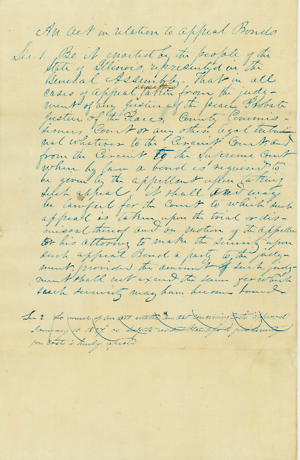 An act in relation to appeal Bonds
Sec 1. Be it enacted by the people of the
State of Illinois represented in the
General Assembly. That in all
cases of appeal taken from the judg-
ment of any justice of the peace Probate
Justice of the Peace, County Commis-
sioners Court or any other legal tribu-
nal whatever to the Circuit Court and
from the Circuit to the Supreme Court
when by law a bond is required to
be given by the appellant upon taking
such appeal it shall and may
be lawful for the Court to which such
appeal is taken upon the trial or dis-
missal thereof and on motion of the appellee
or his attorney to make the security upon
such appeal Bond a party to the judg-
ment provided the amount of such judg-
ment shall not exceed the sum for which
such security may have become bound
Sec 2 So much of an act